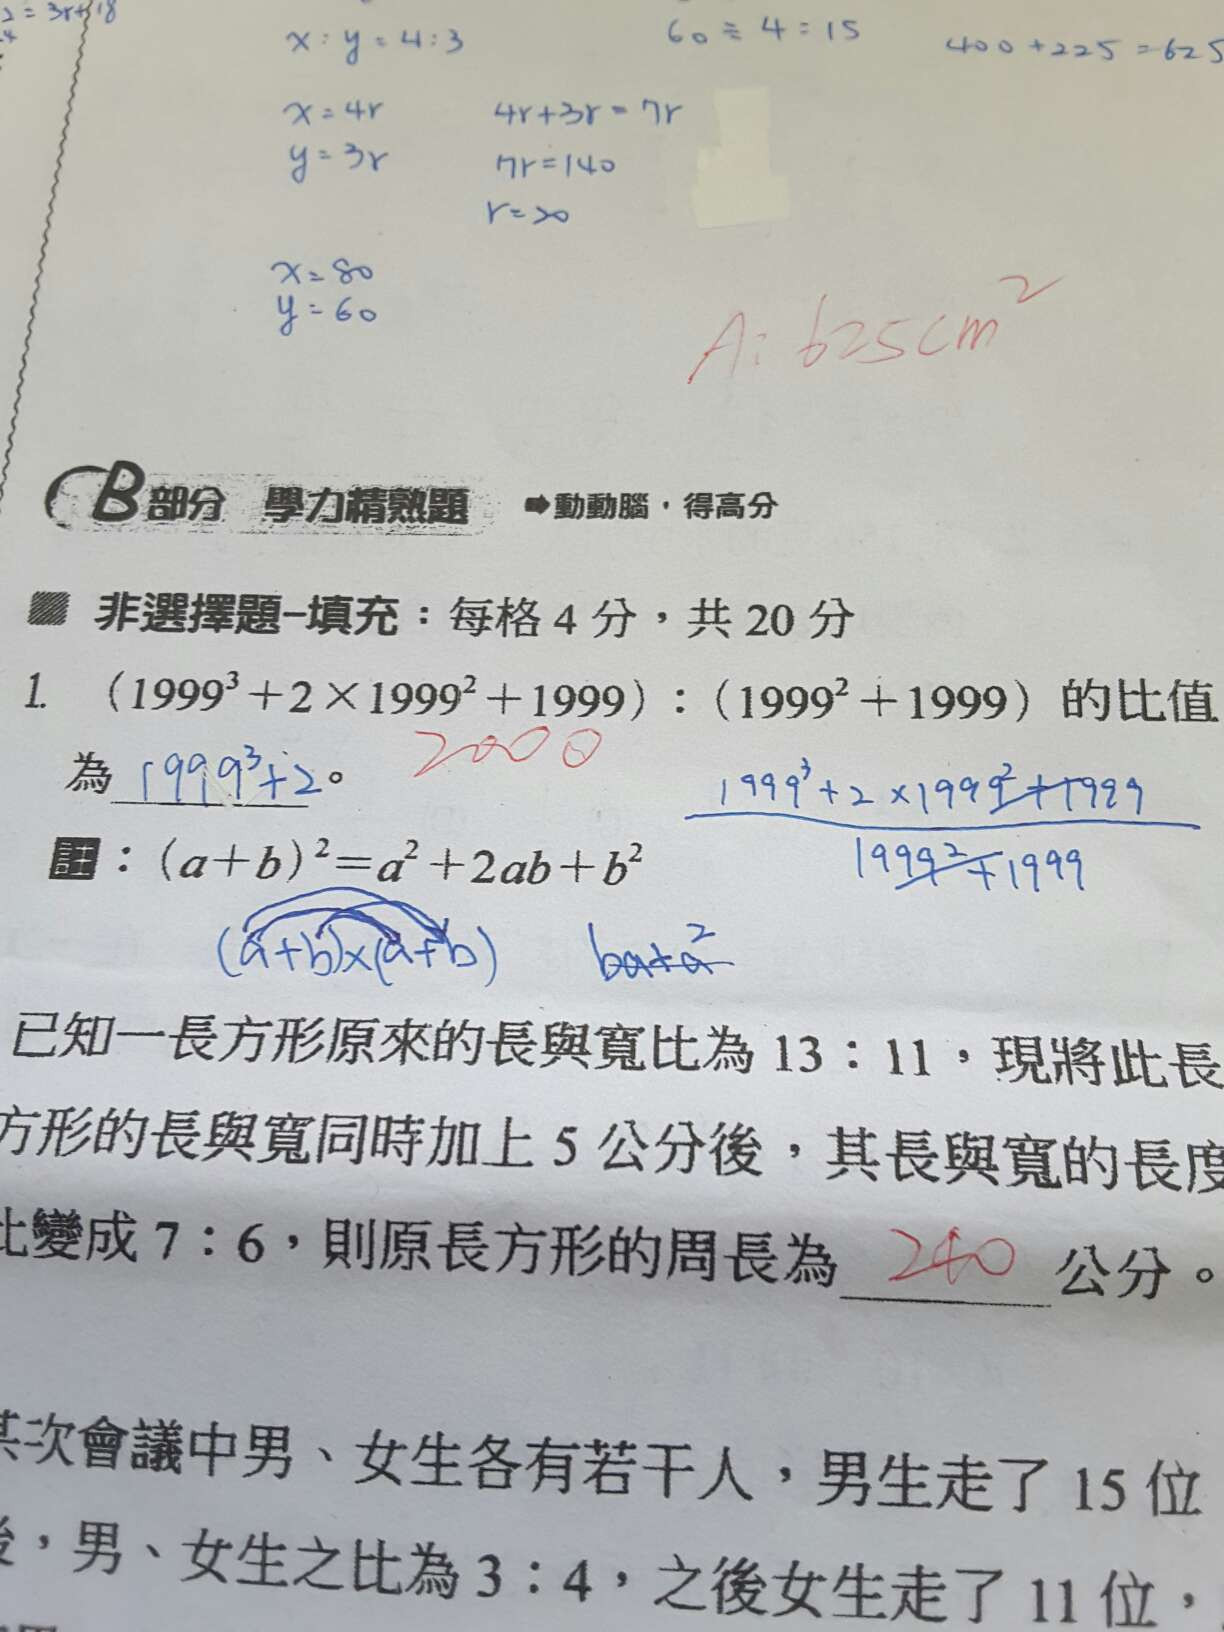 2=3r+18
x:y=4:3
60÷4=15
400+225=625
x=4r
4r+3r=7r
y=3r
7r=140
r=20
x=80
y=60
A:625cm²
B部分 學力精熟題 ➡動動腦・得高分
非選擇題-填充：每格4分，共20分
1. (1999³+2×1999²+1999)：(1999²+1999)的比值
2000
為1999³+2。
1999³+2×1999²+1999
1999²+1999
註：(a+b)²=a²+2ab+b²
(a+b)×(a+b) ba+a²
已知一長方形原來的長與寬比為13：11，現將此長
方形的長與寬同時加上5公分後，其長與寬的長度
比變成7：6，則原長方形的周長為 240 公分。
某次會議中男、女生各有若干人，男生走了15位
後，男、女生之比為3：4，之後女生走了11位，